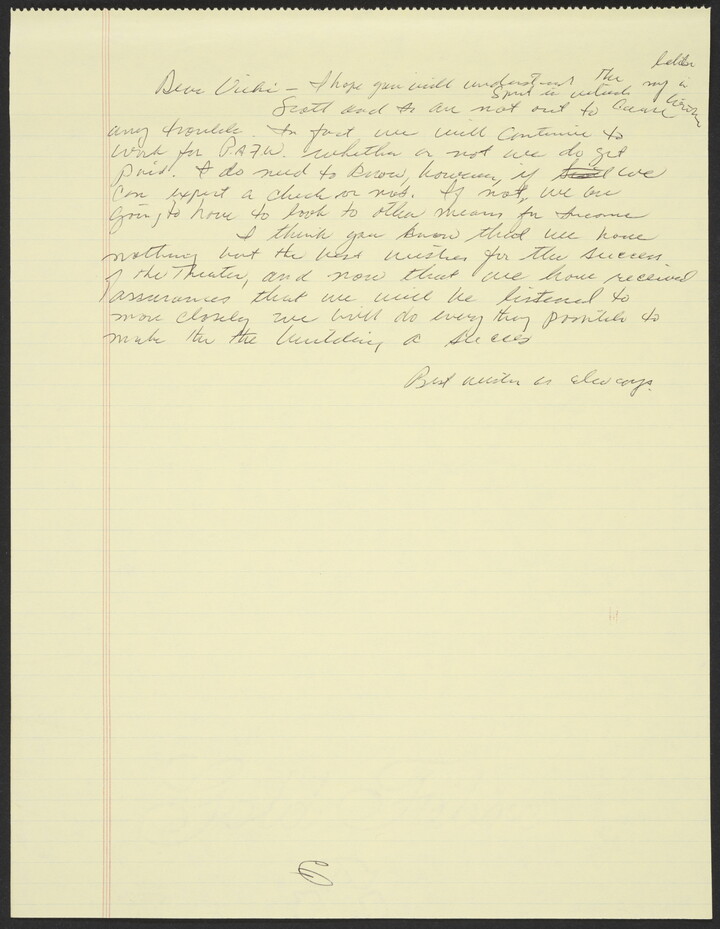 Dear Vicki – I hope you will understand the
Spirit in which my letter is written
Scott and I are not out to cause
any trouble. In fact we will continue to
work for P.A.F.W. whether or not we do get
paid. I do need to know, however, if we
can expect a check or not. If not, we are
going to have to look to other means for income
I think you know that we have
nothing but the best wishes for the success
of the Theater, and now that we have received
assurances that we will be listened to
more closely we will do every thing possible to
make the the building a success
Best wishes as always.